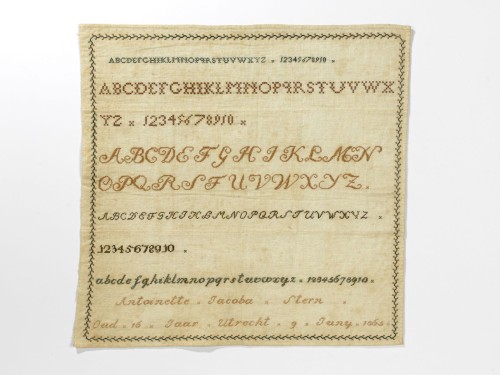 ABCDEFGHIKLMNOPQRSTUVWXYZ . 12345678910 .
ABCDEFGHIKLMNOPQRSTUVWX
YZ × 12345678910 ×
ABCDEFGHIKLMN
OPQRSTUVWXYZ .
ABCDEFGHIKLMNOPQRSTUVWXYZ .
12345678910 .
abcdefghiklmnopqrstuvwxyz . 12345678910 .
Antoinette . Jacoba . Stern .
Oud . 16 . Jaar . Utrecht . 9 . Juny .